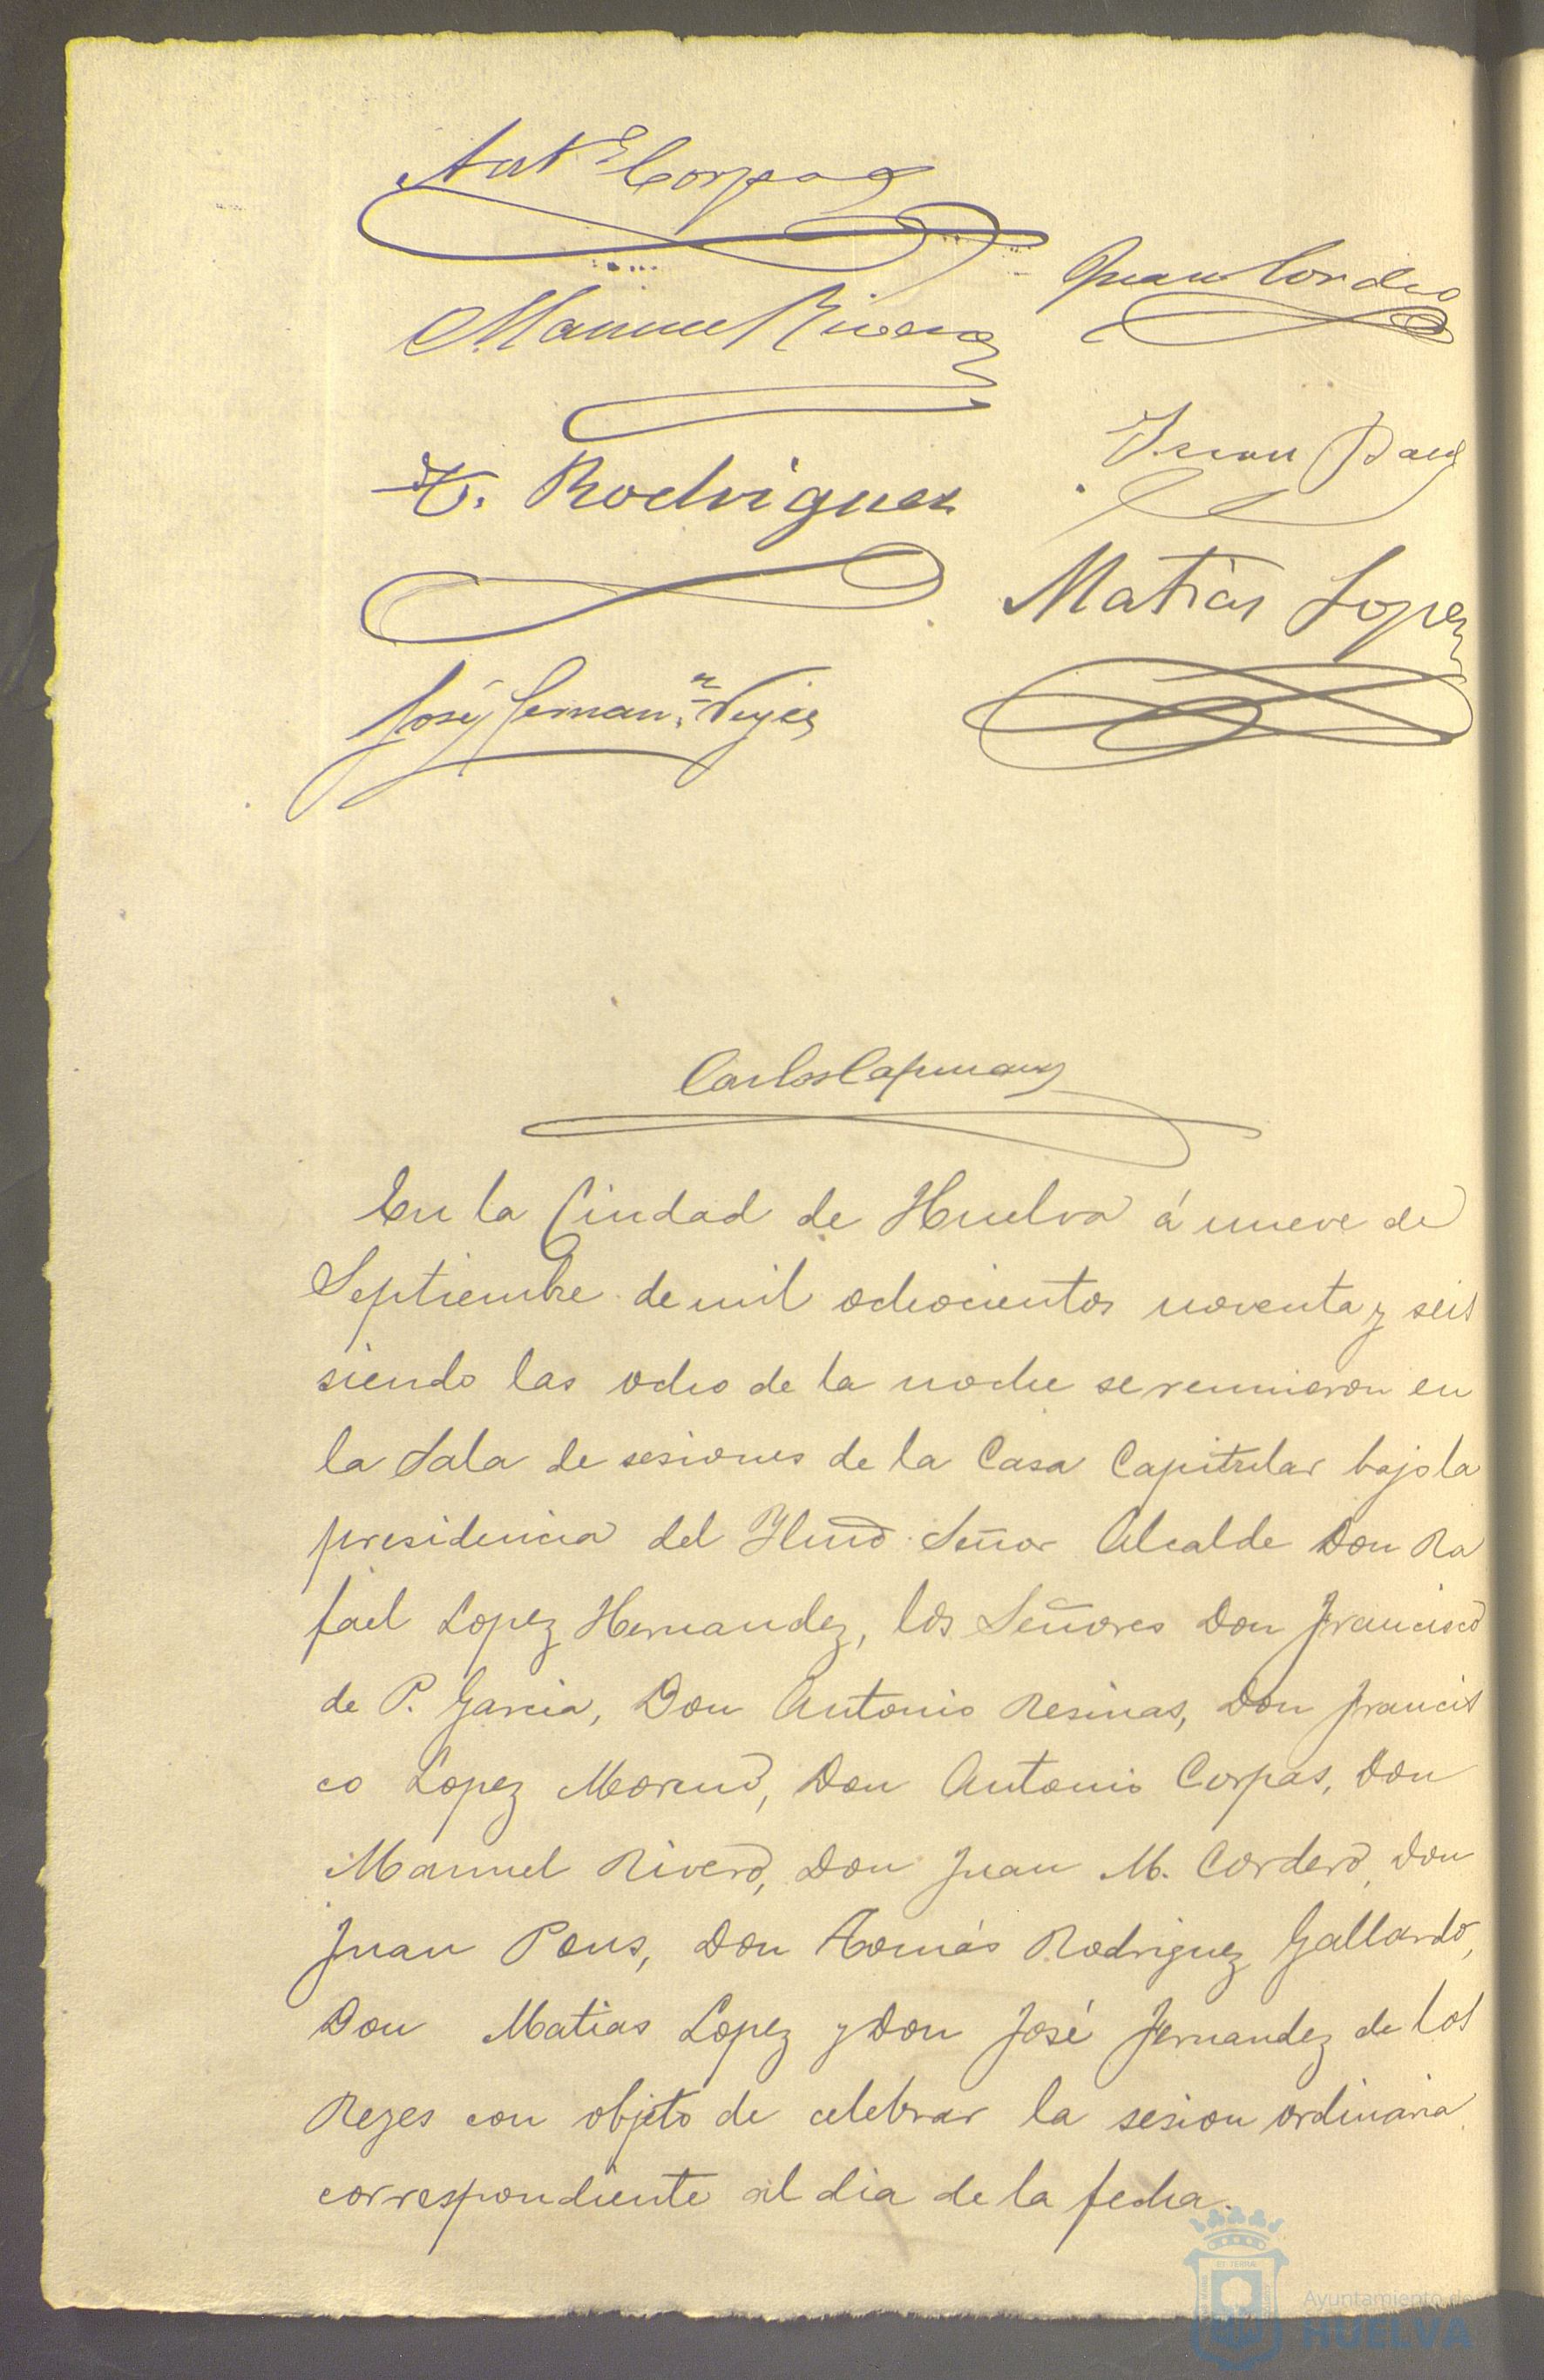 Antº Corpas
Juan Cordero
Manuel Rivero
Juan Pons
T. Rodriguez
Matias Lopez
José Fernanz Reyes
Carlos Capmany
En la Ciudad de Huelva á nueve de
Septiembre de mil ochocientos noventa y seis
siendo las ocho de la noche se reunieron en
la Sala de sesiones de la Casa Capitular bajo la
presidencia del Ylmo Señor Alcalde Don Ra
fael Lopez Hernandez, los Señores Don Francisco
de P. Garcia, Don Antonio Resinas, Don Francis
co Lopez Moreno, Don Antonio Corpas, Don
Manuel Rivero, Don Juan M. Cordero, Don
Juan Pons, Don Tomás Rodriguez Gallardo,
Don Matias Lopez y Don José Fernandez de los
Reyes con objeto de celebrar la sesion ordinaria
correspondiente al dia de la fecha.
Ayuntamiento de
HUELVA